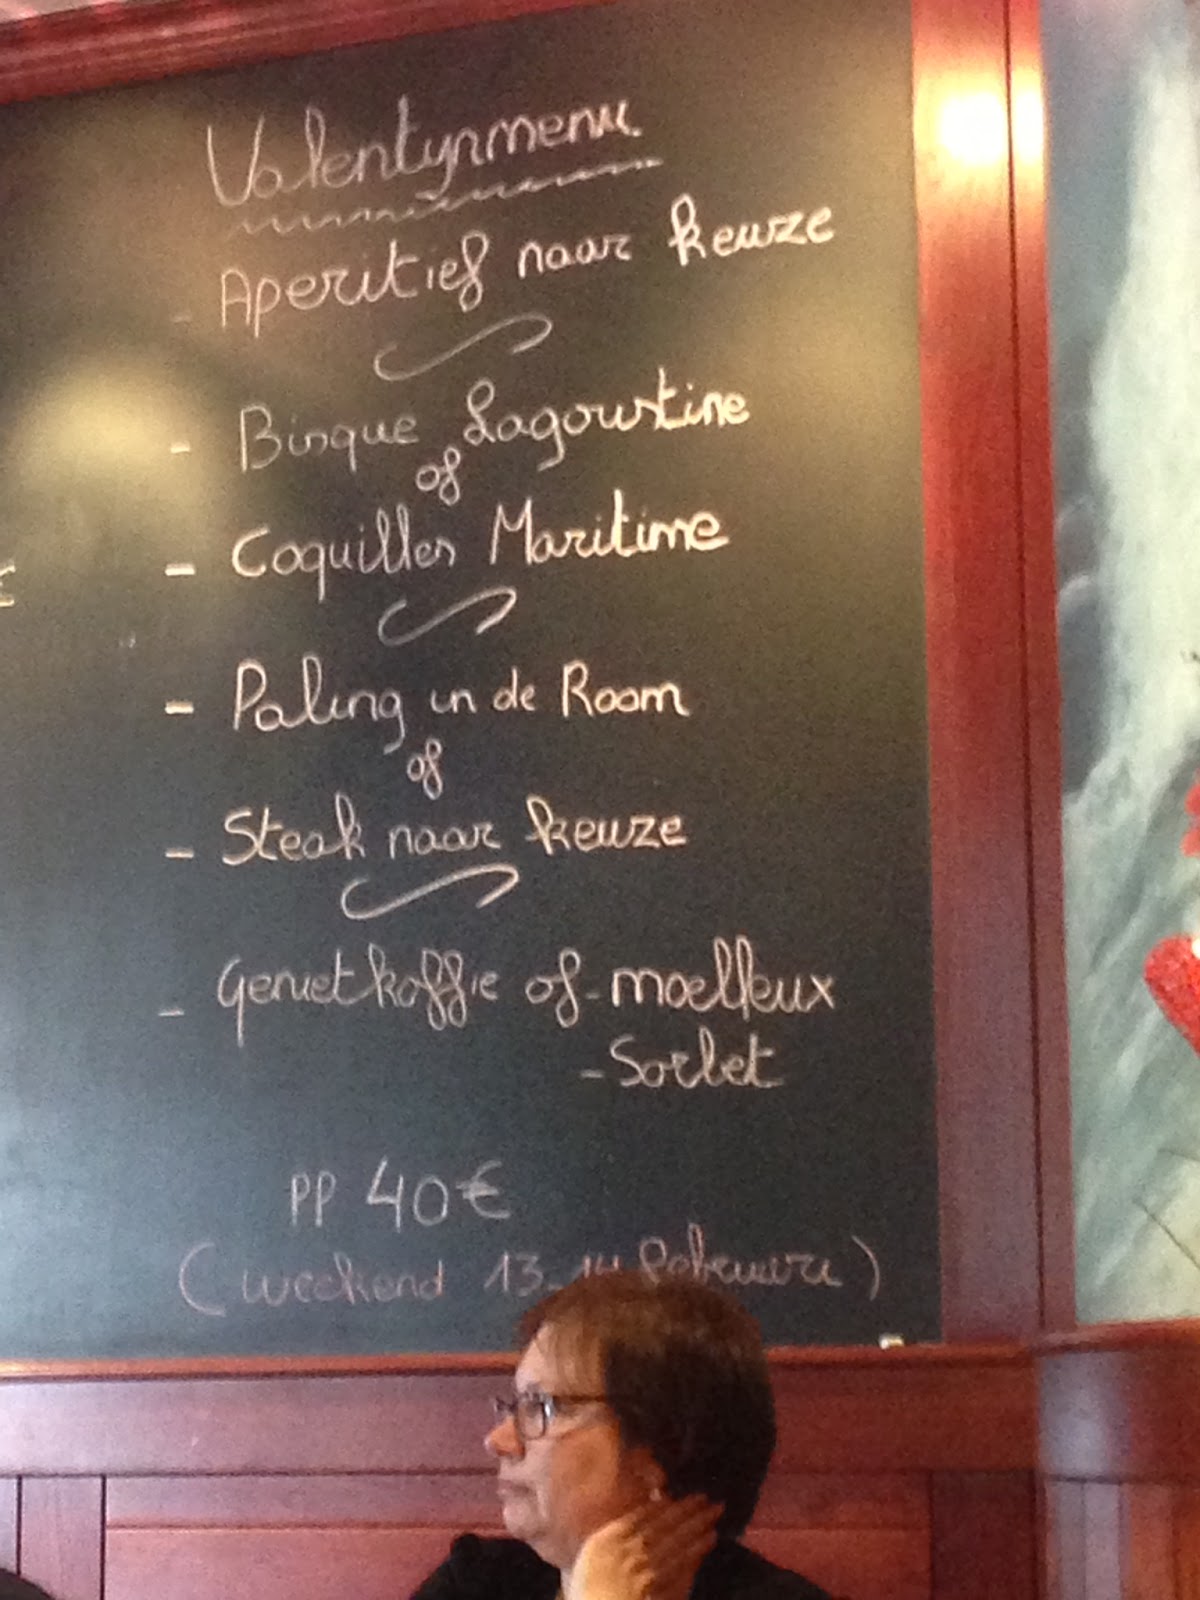 Valentynmenu
- Aperitief naar keuze
- Bisque Lagoustine
of
- Coquilles Maritime
- Paling in de Room
of
- Steak naar keuze
- Genietkoffie of - moelleux
- Sorbet
PP 40€
(weekend 13-14 Februari)